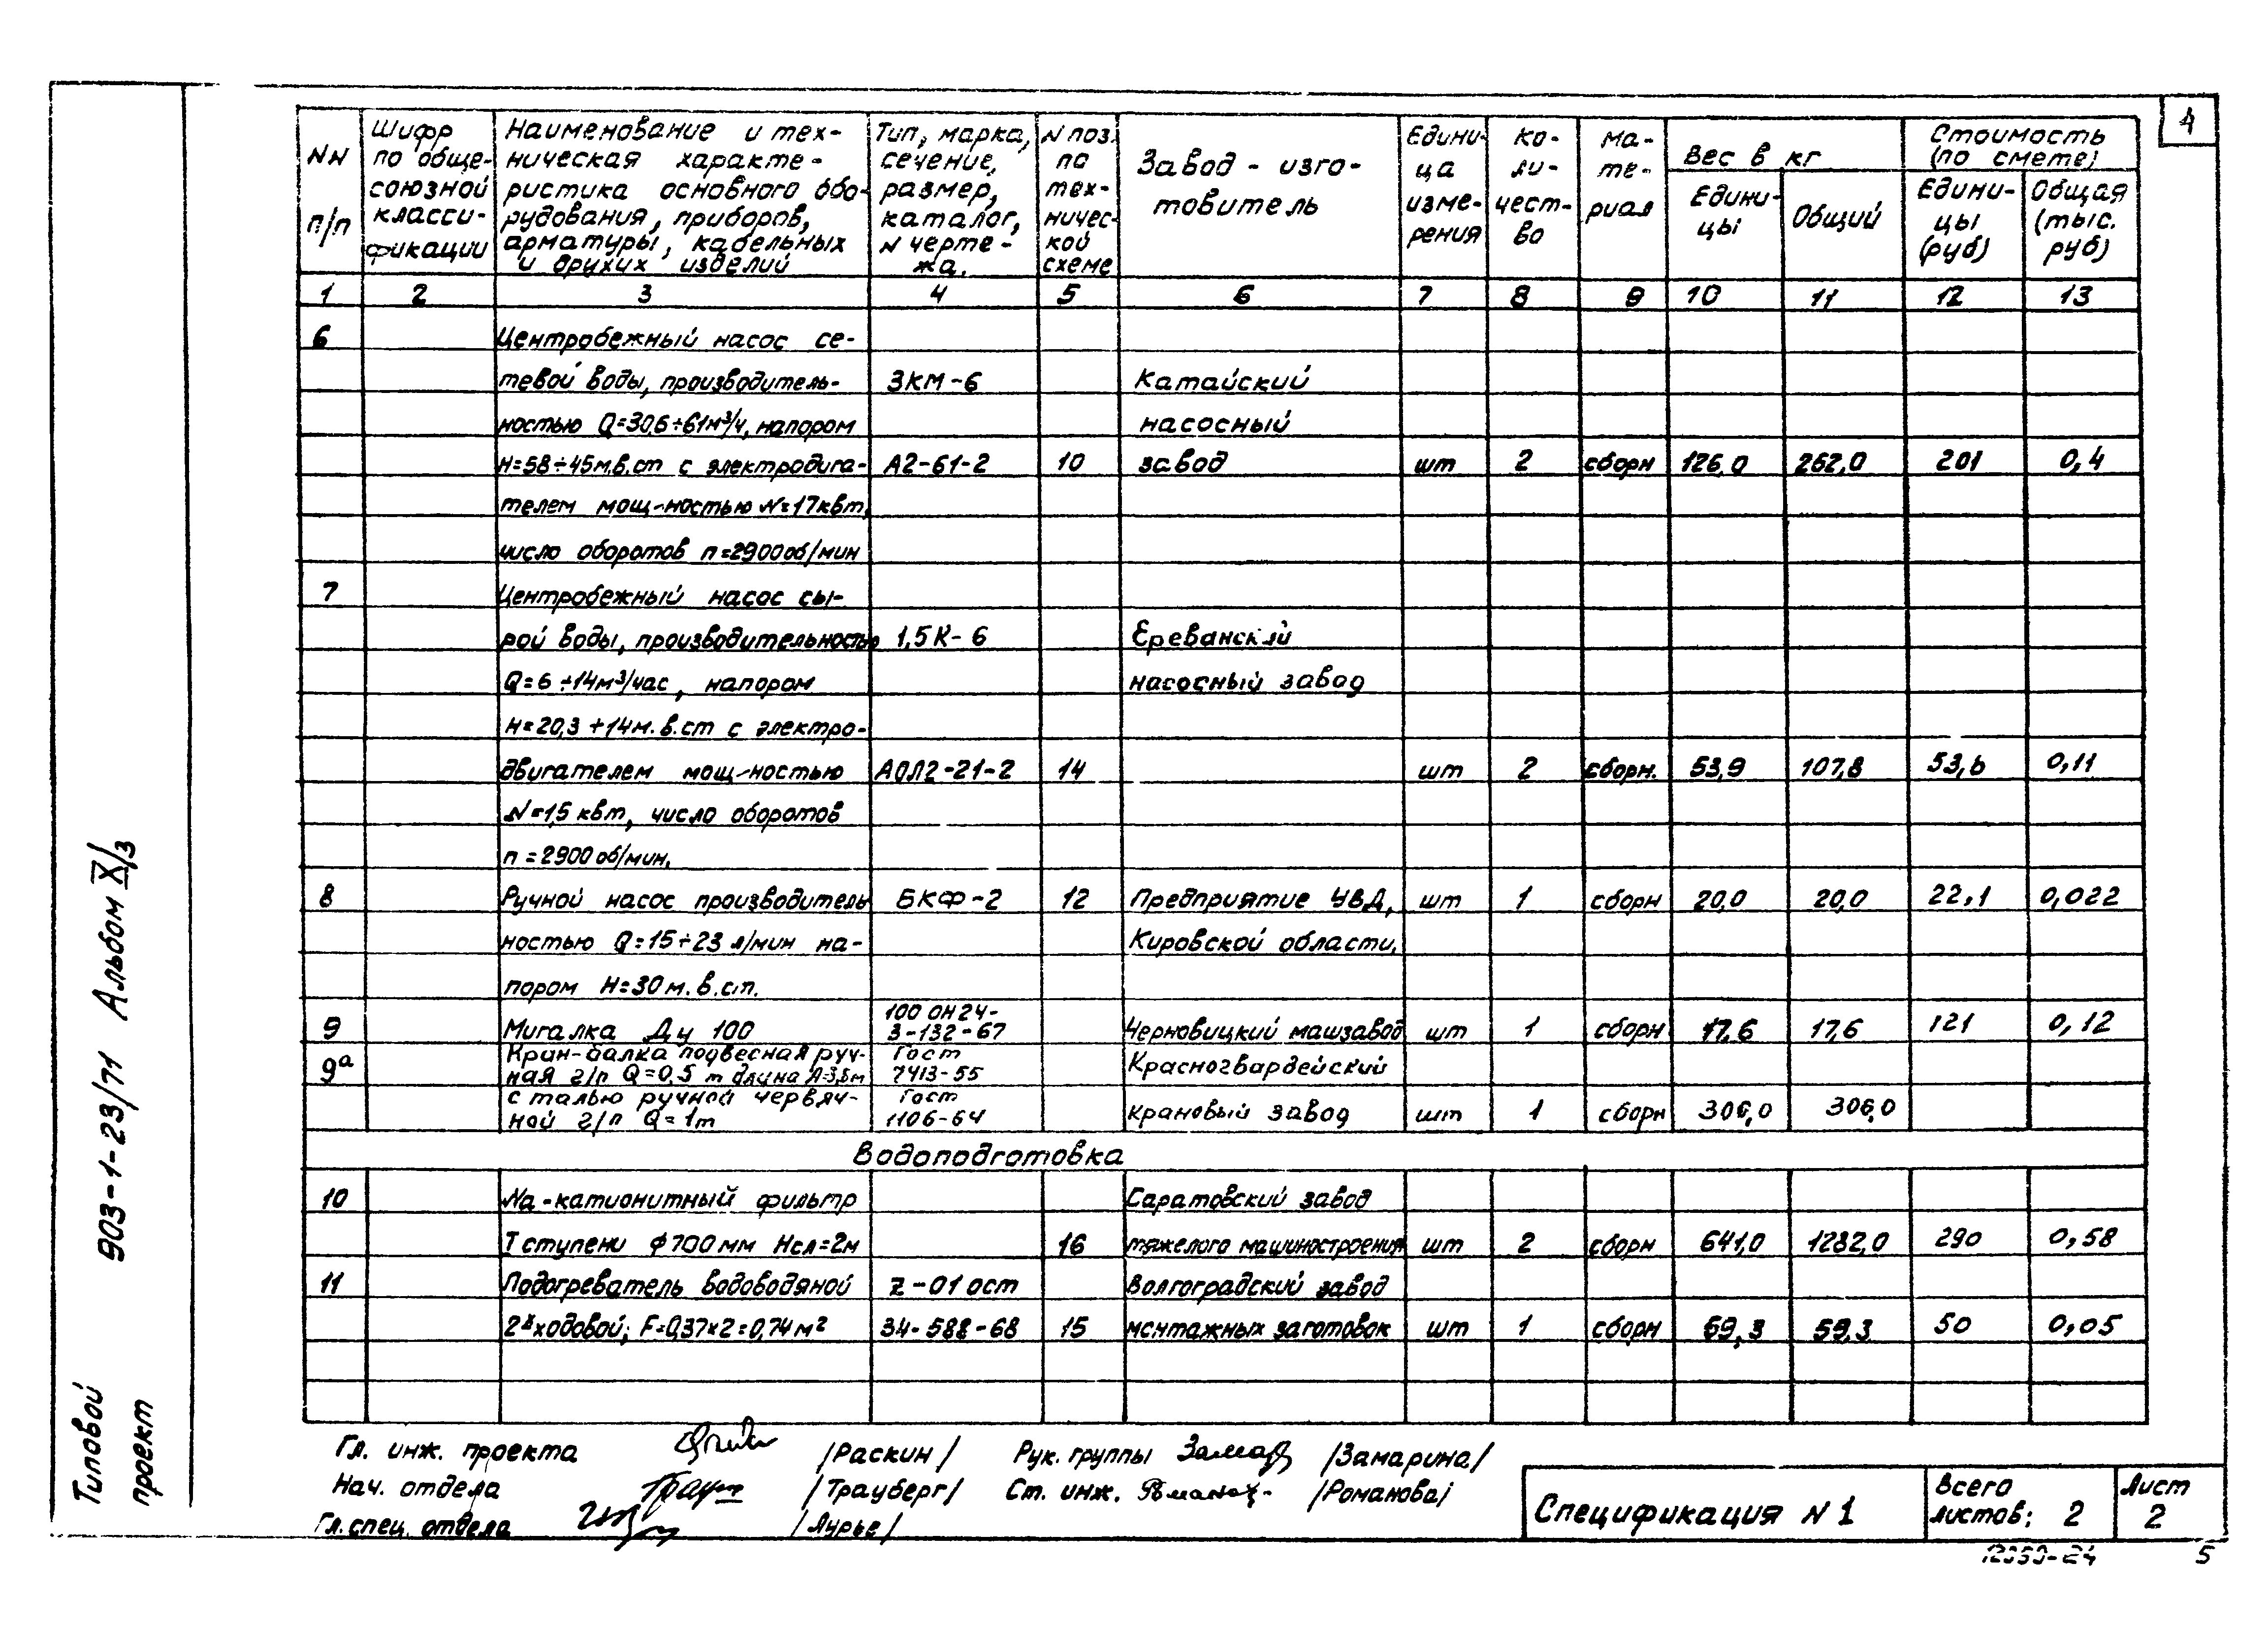 4
NN п/п
Шифр по обще- союзной класси- фикации
Наименование и тех- ническая характе- ристика основного обо- рудования, приборов, арматуры, кабельных и других изделий
Тип, марка, сечение, размер, каталог, N черте- жа.
N поз. по тех- ничес- кой схеме
Завод - изго- товитель
Едини- ца изме- рения
Ко- ли- чест- во
Ма- те- риал
Вес в кг
Едини- цы
Общий
Стоимость (по смете)
Едини- цы (руб)
Общая (тыс. руб)
1 2 3 4 5 6 7 8 9 10 11 12 13
6 Центробежный насос се-
тевой воды, производитель- 3КМ-6 Катайский
ностью Q=30,6÷61м³/ч, напором насосный
H=58÷45м.в.ст с электродига- А2-61-2 10 завод шт 2 сборн 126,0 262,0 201 0,4
телем мощ-ностью N=17квт,
число оборотов п=2900об/мин
7 Центробежный насос сы-
рой воды, производительностью 1,5К-6 Ереванский
Q=6÷14м³/час, напором насосный завод
H=20,3÷14м.в.ст с электро-
двигателем мощ-ностью АОЛ2-21-2 14 шт 2 сборн. 53,9 107,8 53,6 0,11
N=1,5 квт, число оборотов
п=2900 об/мин.
8 Ручной насос производитель БКФ-2 12 Предприятие УВД, шт 1 сборн 20,0 20,0 22,1 0,022
ностью Q=15÷23 л/мин на- Кировской области.
пором H=30м.в.ст.
100 ОН24-
9 Мигалка Ду 100 3-132-67 Черновицкий машзавод шт 1 сборн 17,6 17,6 121 0,12
9а Кран-балка подвесная руч- Гост Красногвардейский
ная г/п Q=0,5 т длина А=3,6м 7413-55
с талью ручной червяч- Гост
ной г/п Q=1т 1106-64 крановый завод шт 1 сборн 306,0 306,0
Водоподготовка
10 Na-катионитный фильтр Саратовский завод
I ступени ф700мм Нсл=2м 16 тяжелого машиностроения шт 2 сборн 641,0 1282,0 290 0,58
11 Подогреватель водоводяной Z-01 ост Волгоградский завод
2х ходовой; F=0,37×2=0,74м² 34-588-68 15 монтажных заготовок шт 1 сборн 59,3 59,3 50 0,05
Гл. инж. проекта /Раскин/ Рук. группы /Замарина/
Нач. отдела /Трауберг/ Ст. инж. /Романова/
Гл. спец. отдела /Лурье/
Спецификация N 1
Всего листов: 2
Лист 2
5
Типовой проект 903-1-23/71 Альбом X/3